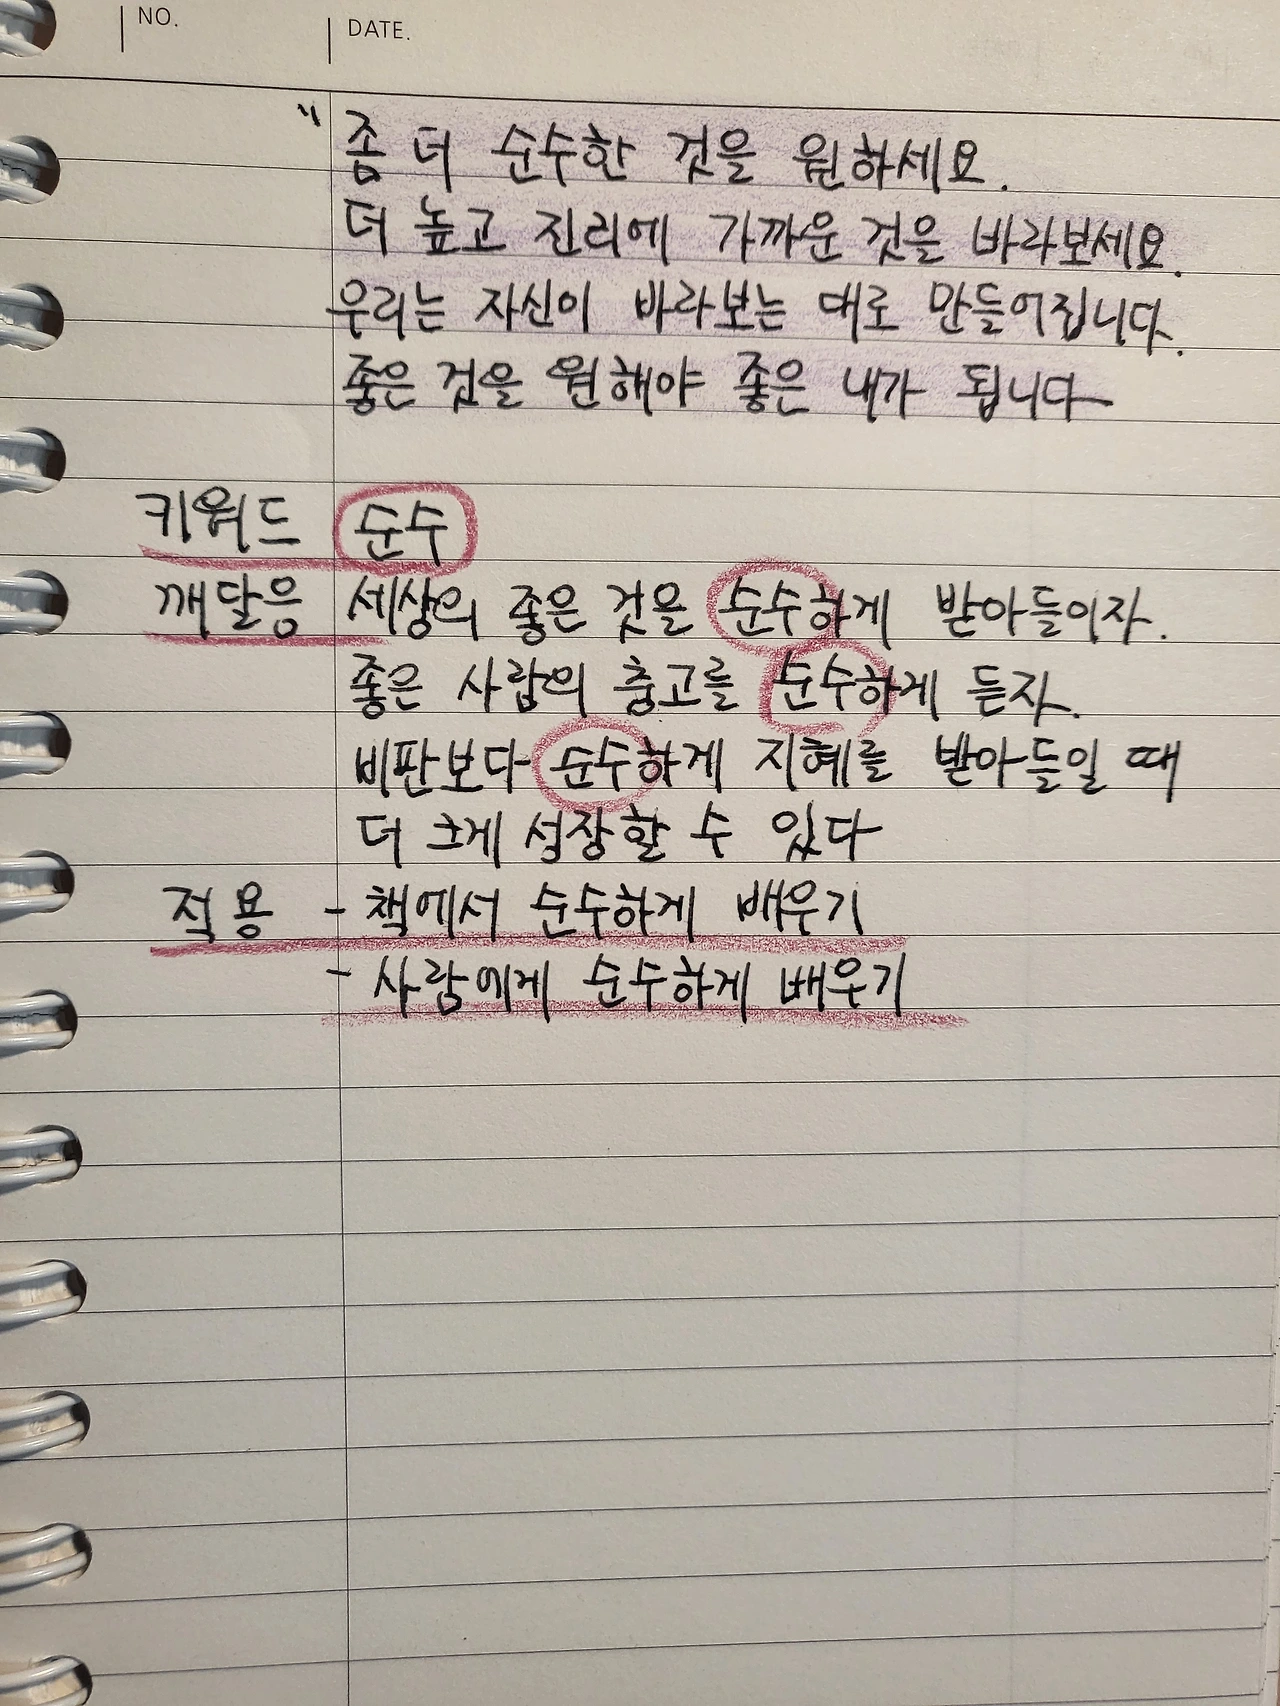 NO. DATE.
" 좀 더 순수한 것을 원하세요.
더 높고 진리에 가까운 것을 바라보세요.
우리는 자신이 바라보는 대로 만들어집니다.
좋은 것을 원해야 좋은 내가 됩니다
키워드 순수
깨달음 세상의 좋은 것을 순수하게 받아들이자.
좋은 사람의 충고를 순수하게 듣자.
비판보다 순수하게 지혜를 받아들일 때
더 크게 성장할 수 있다
적용 - 책에서 순수하게 배우기
- 사람에게 순수하게 배우기